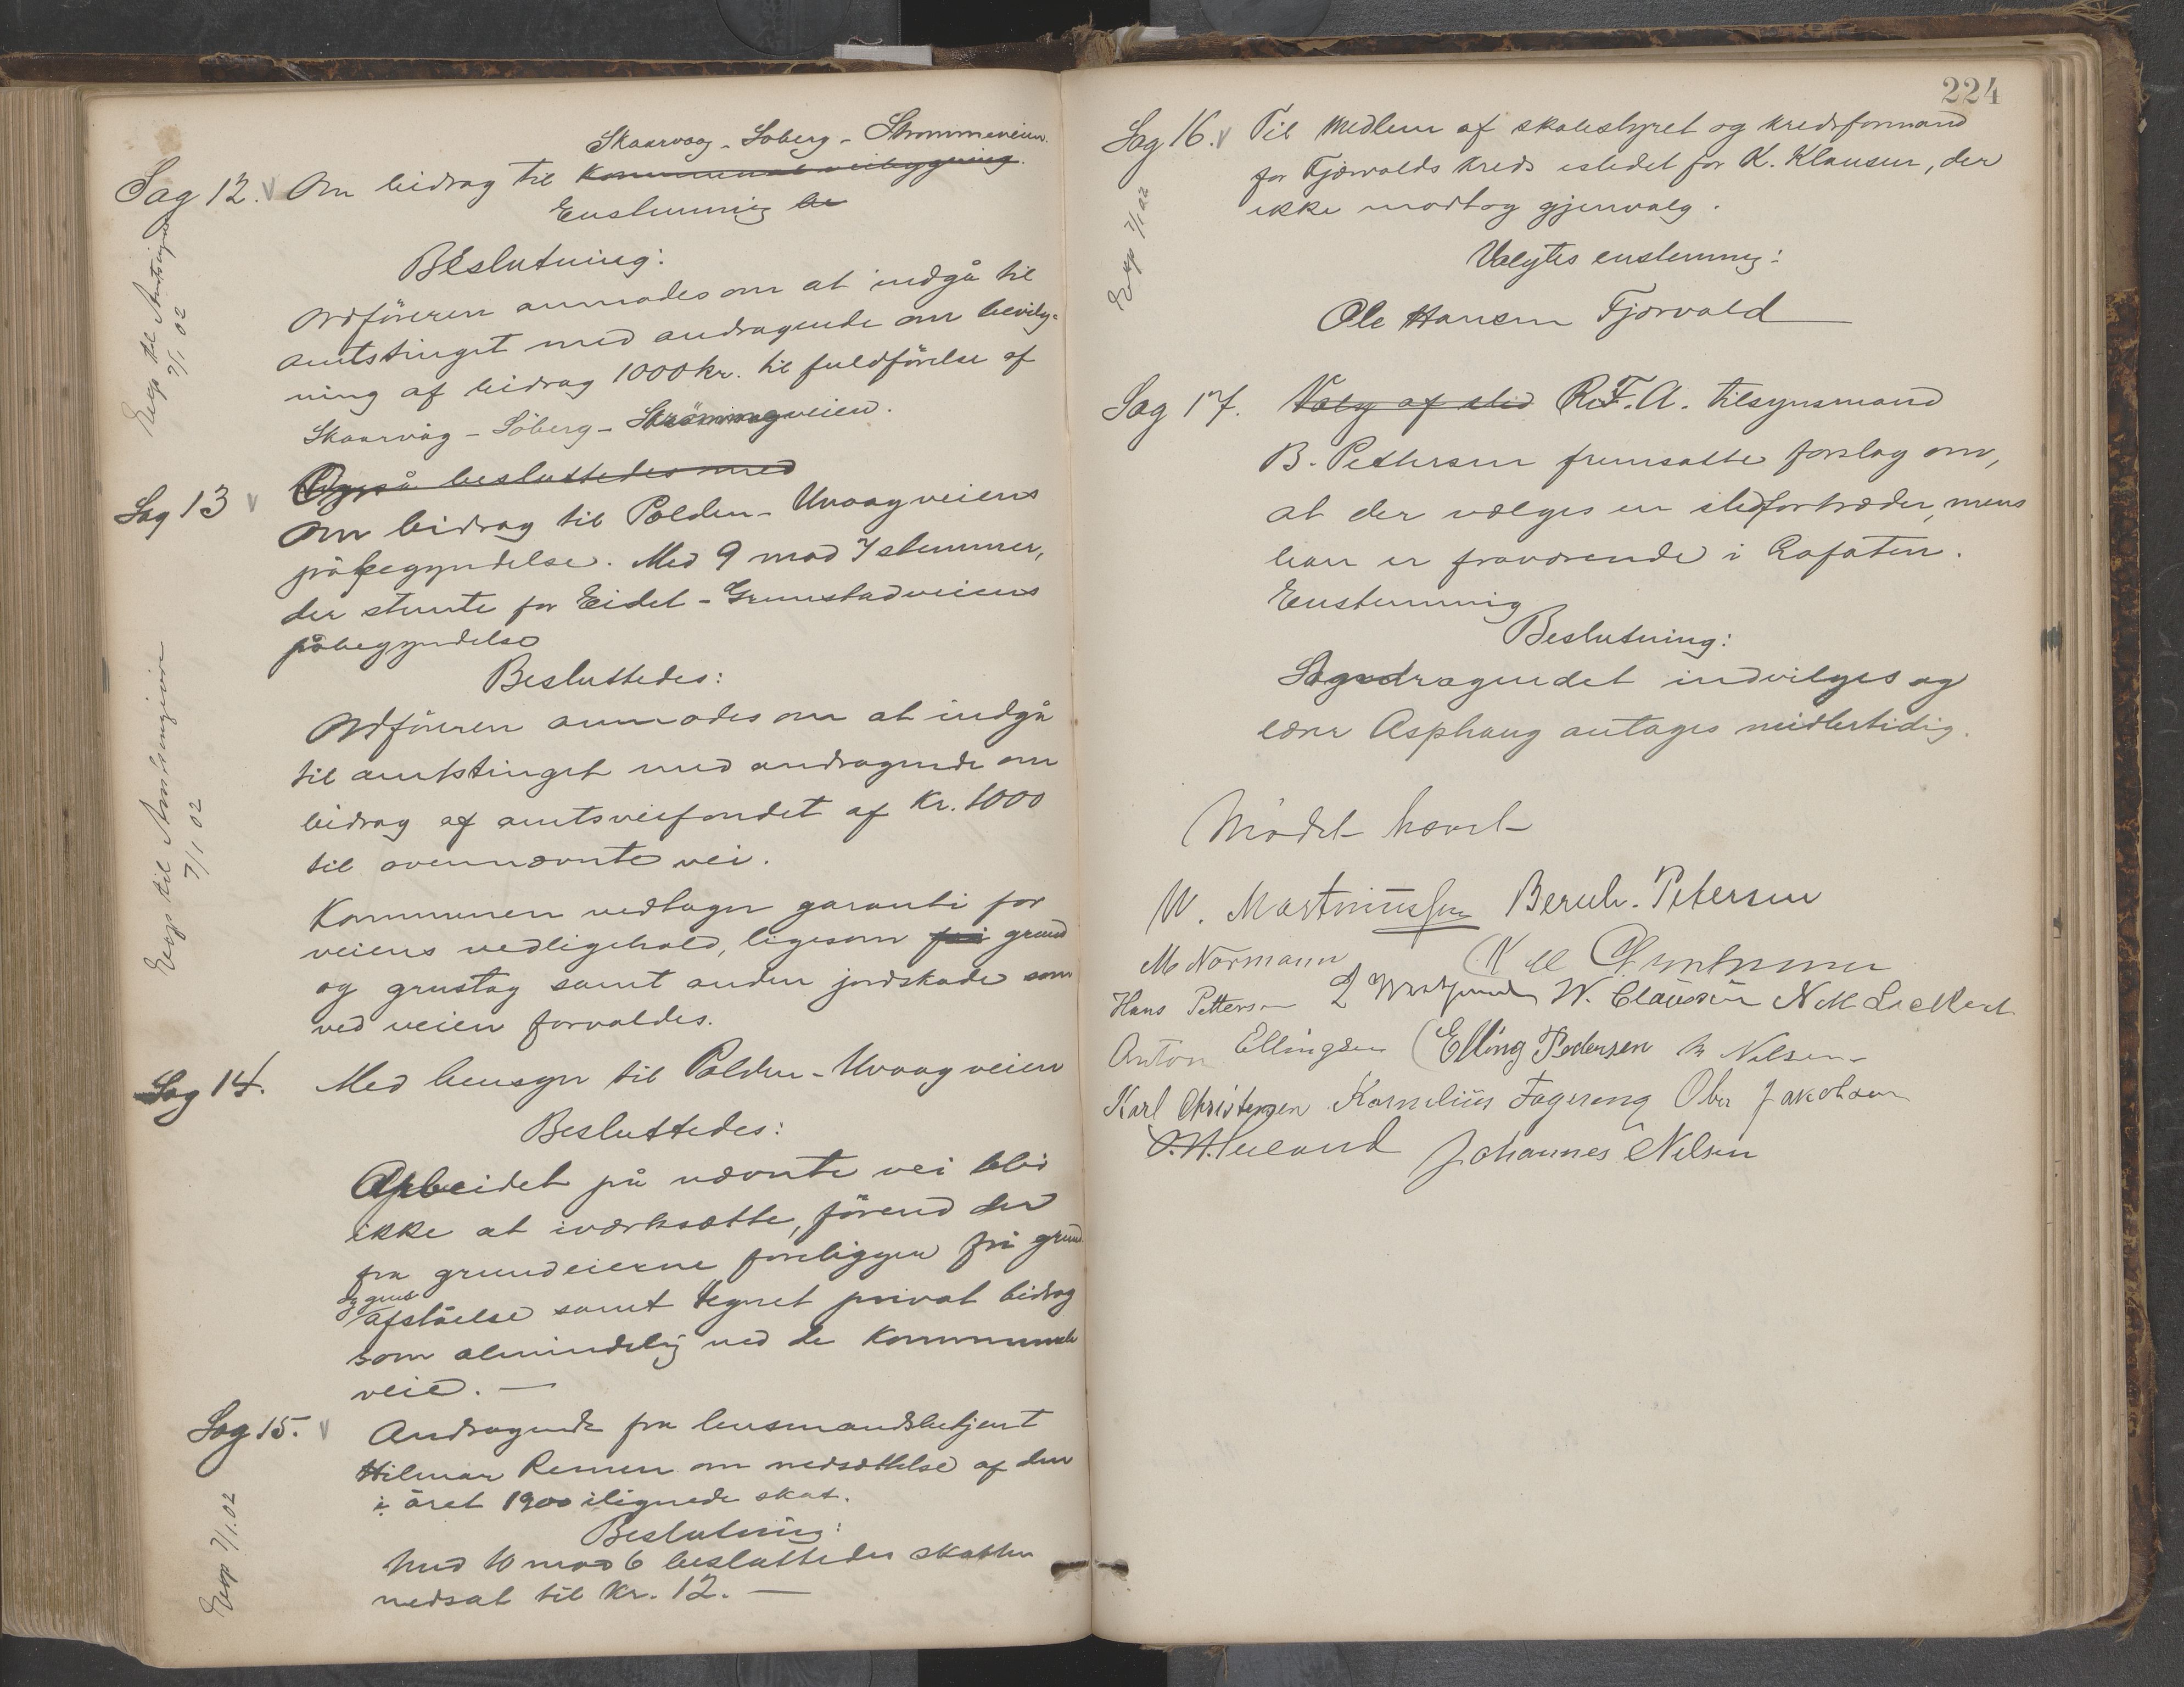 Skaarvaag - Söberg - Strömmeveien.
Sag 12. Om bidrag til kommunal veibygning.
Enstemmig be
Beslutning:
Ordföreren anmodes om at indgå til
amtstinget med andragende om bevilg-
ning af bidrag 1000 kr. til fuldförelse af
Skaarvåg - Söberg - Strömmeveien.
Eksp til Amtsingeniör
7/1 02
Også besluttedes med
Sag 13 Om bidrag til Polden - Uvaagveiens
påbegyndelse. Med 9 mod 7 stemmer,
der stemte for Eidet - Grunstadveiens
påbegyndelse
Besluttedes:
Ordföreren anmodes om at indgå
til amtstinget med andragende om
bidrag af amtsveifondet af Kr. 1000
til ovennævnte vei.
Eksp til Amtsingeniör
7/1 02
Kommunen vedtager garanti for
veiens vedligehold, ligesom fri grund
og grustag samt anden jordskade som
ved veien forvoldes.
Sag 14. Med hensyn til Polden - Uvaagveien
Besluttedes:
Arbeidet på nævnte vei blir
ikke at iværksætte, förend der
fra grundeierne foreligger fri grund
og grus
afståelse samt tegnet privat bidrag
som almindelig ved de kommunale
veie. —
Sag 15. Andragende fra lensmandsbetjent
Hilmar Remen om nedsættelse af den
i året 1900 ilignede skat.
Beslutning:
Med 10 mod 6 besluttedes skatten
nedsat til Kr. 12. —
Eksp 7/1.02
224
Sag 16. Til Medlem af skolestyret og kredsformand
for Fjærvolds kreds istedet for K. Klausen, der
ikke modtog gjenvalg.
Eksp 7/1 02
Valgtes enstemmig:
Ole Hansen Fjærvold
Sag 17. Valg af sted R.F.A. tilsynsmand
B. Pettersen fremsatte forslag om,
at der vælges en stedfortræder, mens
han er fraværende i Lofoten.
Enstemmig
Beslutning:
Andragendet indvilges og
lærer Asphaug antages midlertidig.
Mödet hævet
W. Martinussen Bernh. Petersen
M Normann K M
Hans Pettersen W. Claussen N M Lockert
Anton Ellingsen Elling Pedersen M Nilsen
Karl Christensen Kornelius Fagereng Ober Jakobsen
Johannes Nilsen